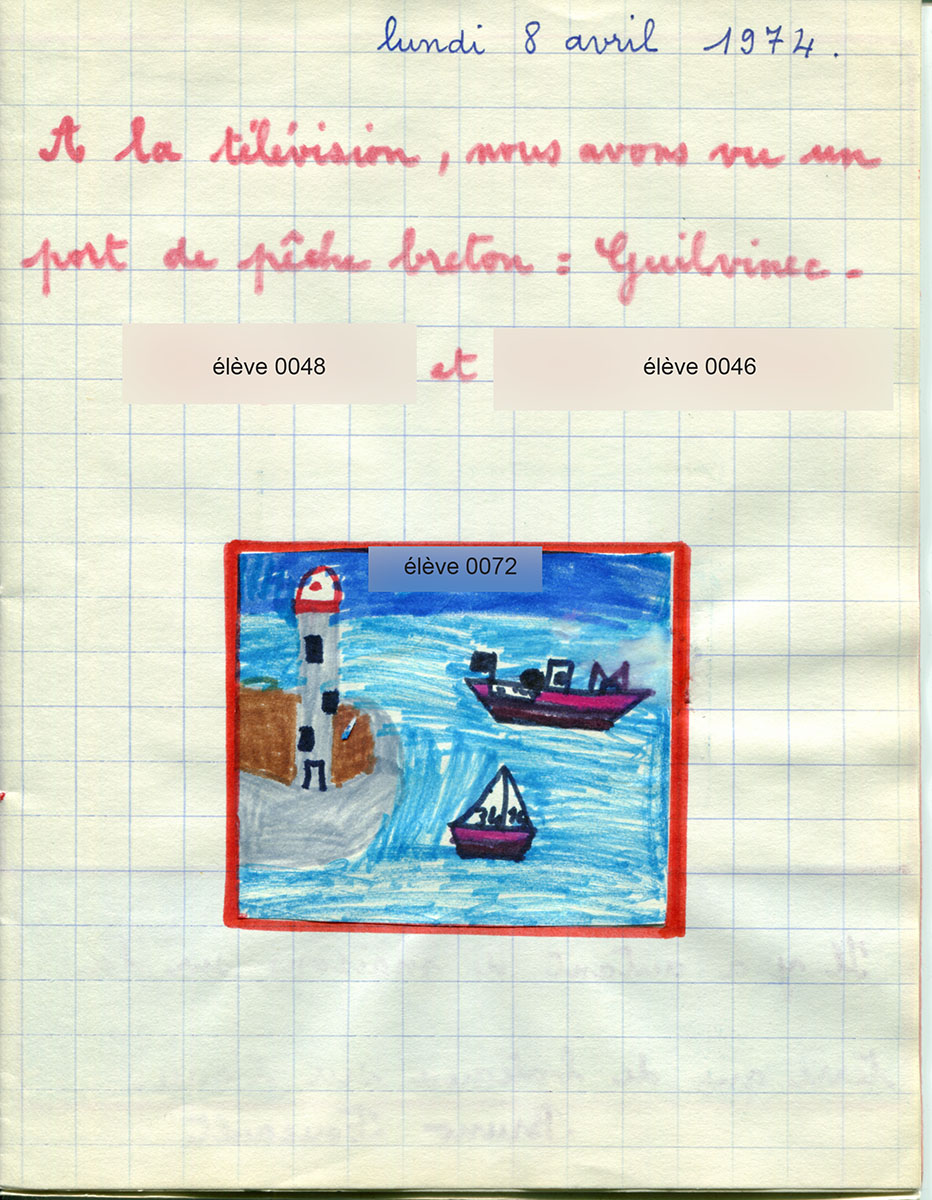 lundi 8 avril 1974.
A la télévision, nous avons vu un
port de pêche breton : Guilvinec.
élève 0048 et élève 0046
élève 0072